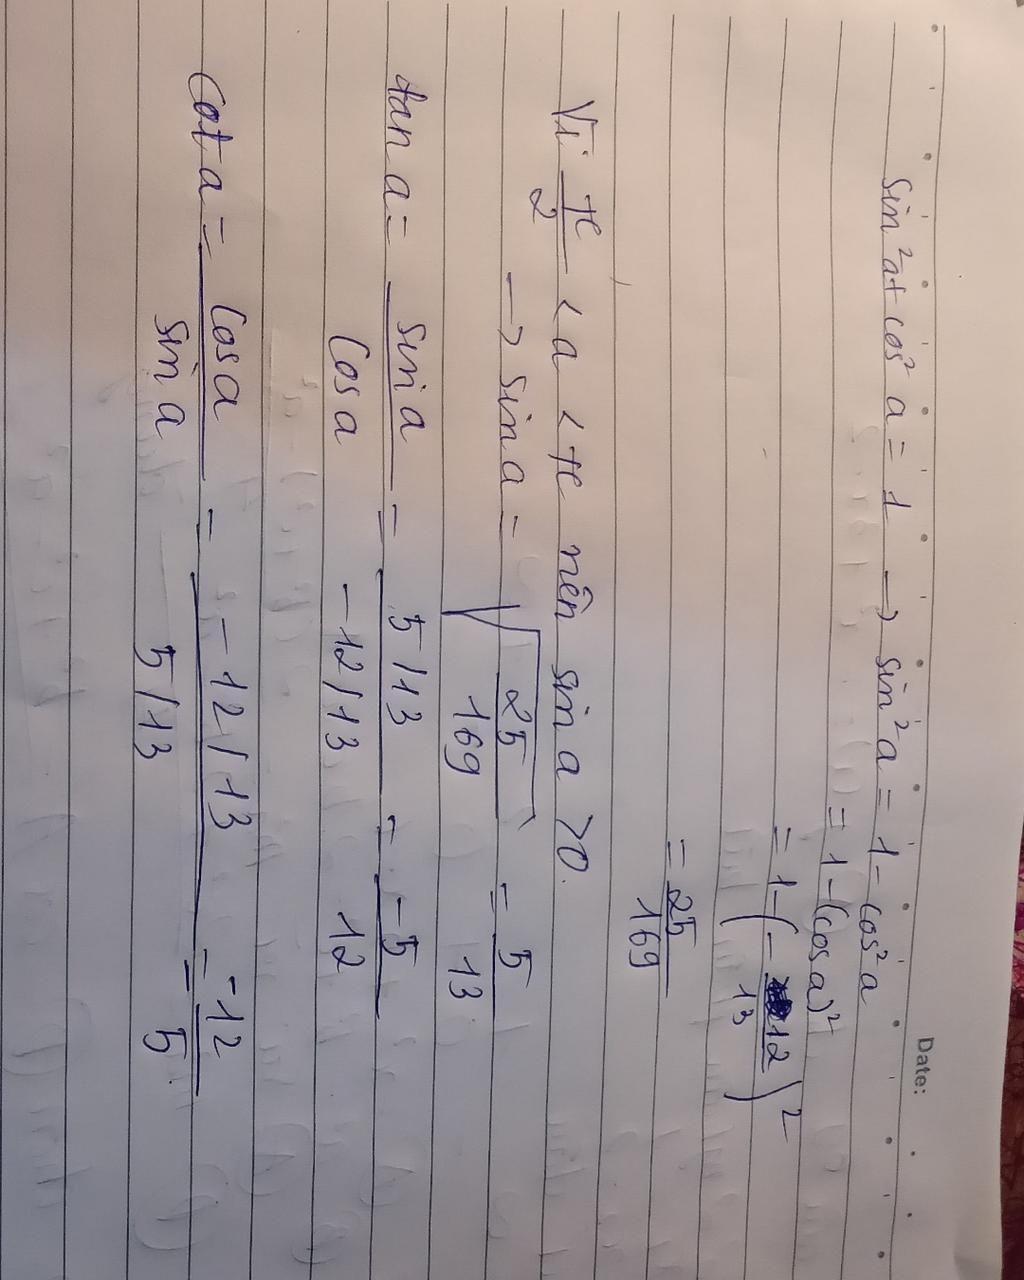 Date:
sin²a + cos²a = 1 → sin²a = 1 - cos²a
= 1 - (cos a)²
= 1 - (- 12/13)²
= 25/169
Vì π/2 < a < π nên sin a > 0.
→ sin a = √(25/169) = 5/13
tan a = sin a / cos a = 5/13 / -12/13 = -5/12
Cot a = Cos a / sin a = -12/13 / 5/13 = -12/5